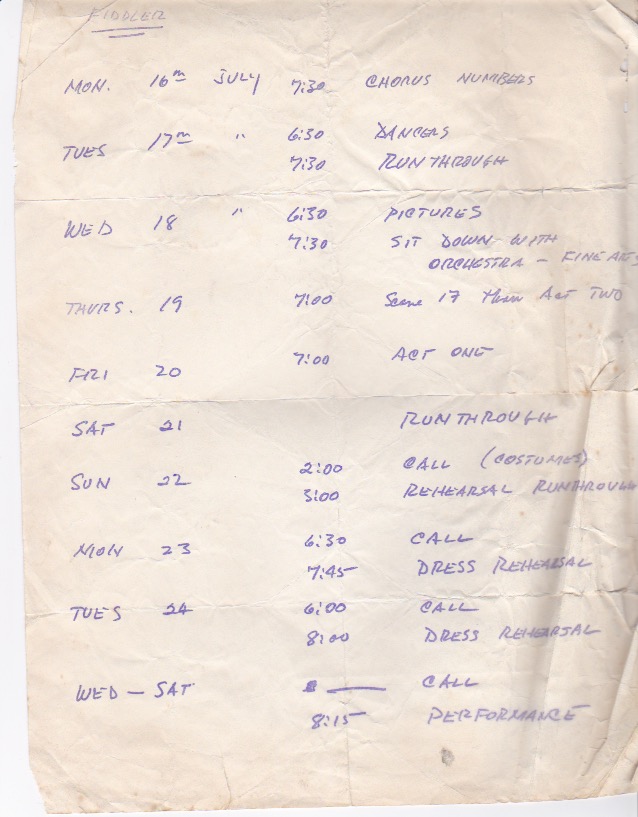 FIDDLER
MON. 16TH JULY 7:30 CHORUS NUMBERS
TUES 17TH " 6:30 DANCERS
7:30 RUNTHROUGH
WED 18 " 6:30 PICTURES
7:30 SIT DOWN WITH
ORCHESTRA - FINE ARTS
THURS. 19 7:00 Scene 17 then Act TWO
FRI 20 7:00 ACT ONE
SAT 21 RUNTHROUGH
SUN 22 2:00 CALL (COSTUMES)
3:00 REHEARSAL RUNTHROUGH
MON 23 6:30 CALL
7:45 DRESS REHEARSAL
TUES 24 6:00 CALL
8:00 DRESS REHEARSAL
WED - SAT — CALL
8:15 PERFORMANCE